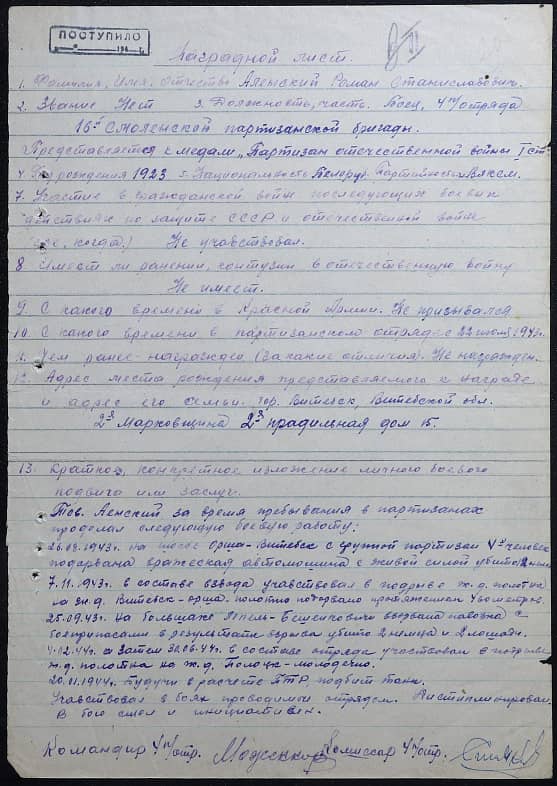 ПОСТУПИЛО
194 г.
Наградной лист.
1. Фамилия, Имя, Отчество Аленский Роман Станиславович.
2. Звание Нет 3. Должность, часть. Боец, 4го отряда
16й Смоленской партизанской бригады.
Представляется к медали, Партизан отечественной войны I ст.
4. Год рождения 1923 5. Национальность Белорус. Партийность
7. Участие в гражданской войне последующих боевых
действиях по защите СССР и отечественной войне
(где, когда) Не участвовал.
8. Имеет ли ранения, контузии в отечественную войну
Не имеет.
9. С какого времени в Красной Армии. Не призывался
10. С какого времени в партизанском отряде с 22 июля 1943г.
11. Чем ранее награжден (за какие отличия). Не награжден.
12. Адрес места рождения представляемого к награде
и адрес его семьи. гор. Витебск, Витебской обл.
2я Марковщина 2я прядильная дом 15.
13. Краткое, конкретное изложение личного боевого
подвига или заслуг.
Тов. Аленский за время пребывания в партизанах
проделал следующую боевую работу:
26.08.1943г. на шоссе Орша-Витебск с группой партизан 4х человек
подорвана вражеская автомашина с живой силой убито
7.11.1943г. в составе взвода участвовал в подрыве ж.д. полотна
на ж.д. Витебск-Орша. полотно подорвано протяжением метров.
25.09.43г. На большаке Лепель-Бешенковичи взорвана повозка с
боеприпасами в результате взрыва убито 2 немца и 2 лошади.
а затем 30.06.44г. в составе отряда участвовал в подрыве
ж.д. полотна на ж.д. Полоцк-Молодечно.
20. 1944г. Будучи в расчете ПТР подбит танк.
Участвовал в боях проводимых отрядом. Дисциплинирован.
В бою смел и инициативен.
Командир 4го отр. Комиссар 4го отр.